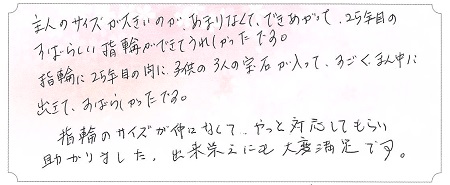 主人のサイズが大きいのが、あまりなくて、できあがって、25年目の
すばらしい指輪ができてうれしかったです。
指輪に25年目の内に、子供の3人の宝石が入って、すごく、まん中に
出きて、すばらしかったです。
指輪のサイズが他になくて、やっと対応してもらい
助かりました。出来栄えにも大変満足です。